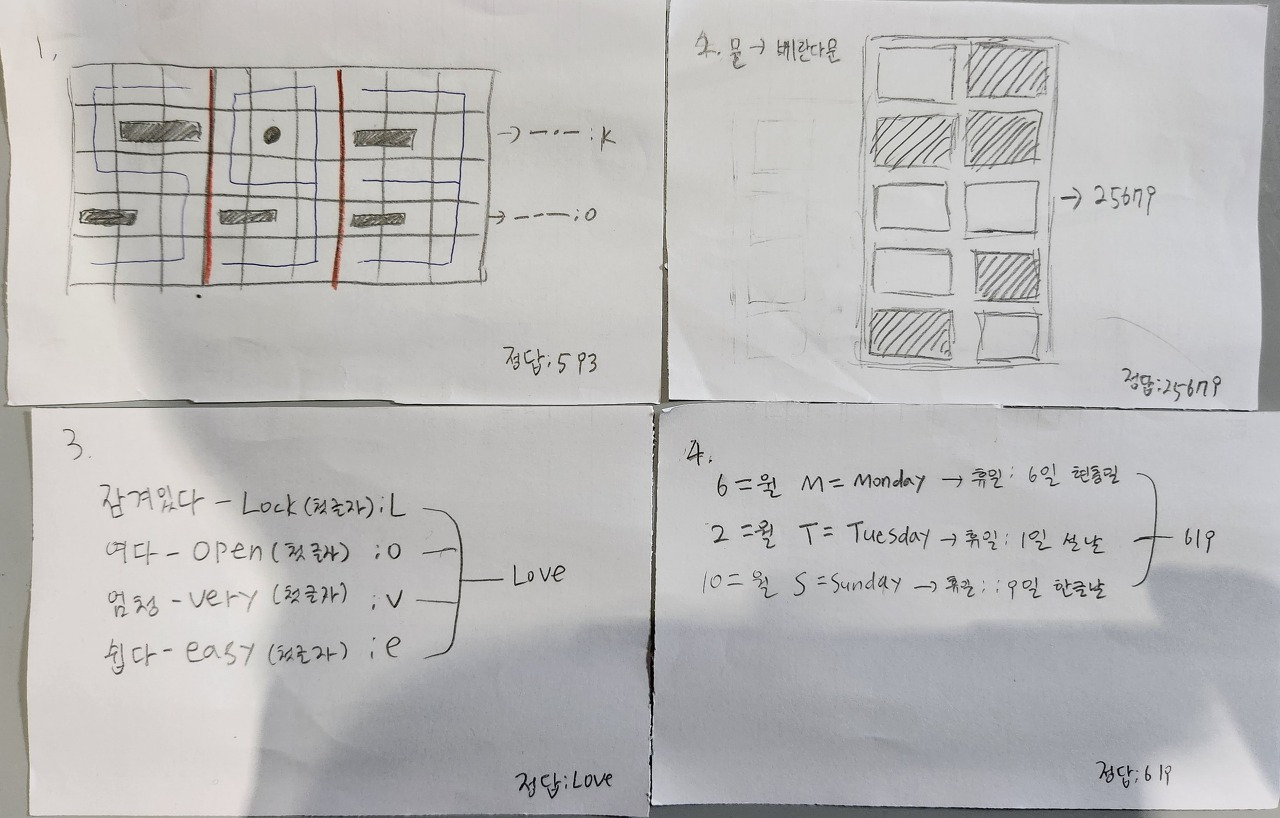 1.
→ −·− : K
→ −−− : O
정답 : 593
2. 문 → 베란다문
→ 25679
정답 : 25679
3.
잠겨있다 - Lock (첫글자) ; L
여다 - open (첫글자) ; o
엄청 - very (첫글자) ; v
쉽다 - easy (첫글자) ; e
Love
정답 ; Love
4.
6 = 월 M = Monday → 휴일 : 6일 현충일
2 = 월 T = Tuesday → 휴일 : 1일 설날
10 = 월 S = Sunday → 휴일 : : 9일 한글날
619
정답 ; 619